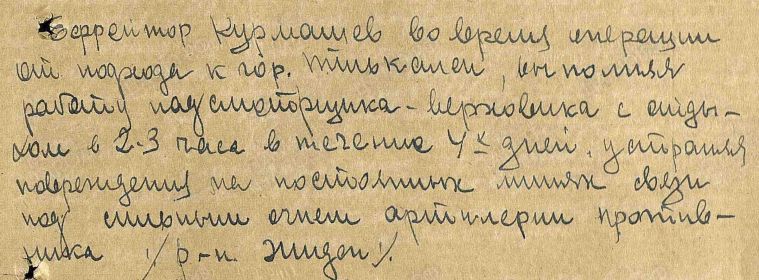 Ефрейтор Курмашев во время операции
от подхода к гор. Пилькален, выполняя
работу надсмотрщика-верховика с отды-
хом в 2-3 часа в течение 4х дней, устранял
повреждения на постоянных линиях связи
под сильным огнем артиллерии против-
ника /р-н. Жидон/.